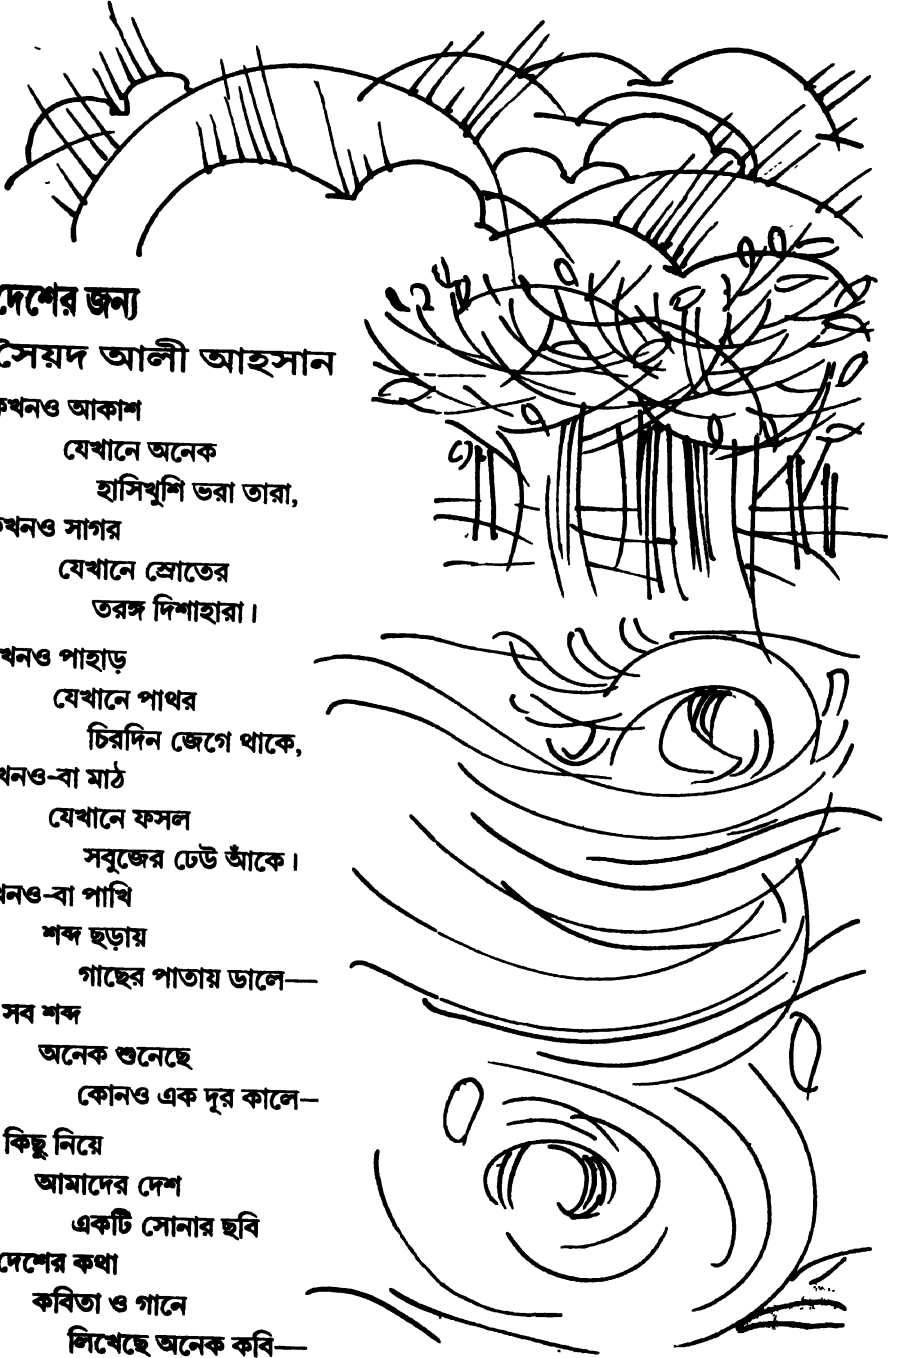 দেশের জন্য
সৈয়দ আলী আহসান
কখনও আকাশ
যেখানে অনেক
হাসিখুশি ভরা তারা,
কখনও সাগর
যেখানে স্রোতের
তরঙ্গ দিশাহারা।
খনও পাহাড়
যেখানে পাথর
চিরদিন জেগে থাকে,
খনও-বা মাঠ
যেখানে ফসল
সবুজের ঢেউ আঁকে।
খনও-বা পাখি
শব্দ ছড়ায়
গাছের পাতায় ডালে—
সব শব্দ
অনেক শুনেছে
কোনও এক দূর কালে—
কিছু নিয়ে
আমাদের দেশ
একটি সোনার ছবি
দেশের কথা
কবিতা ও গানে
লিখেছে অনেক কবি—